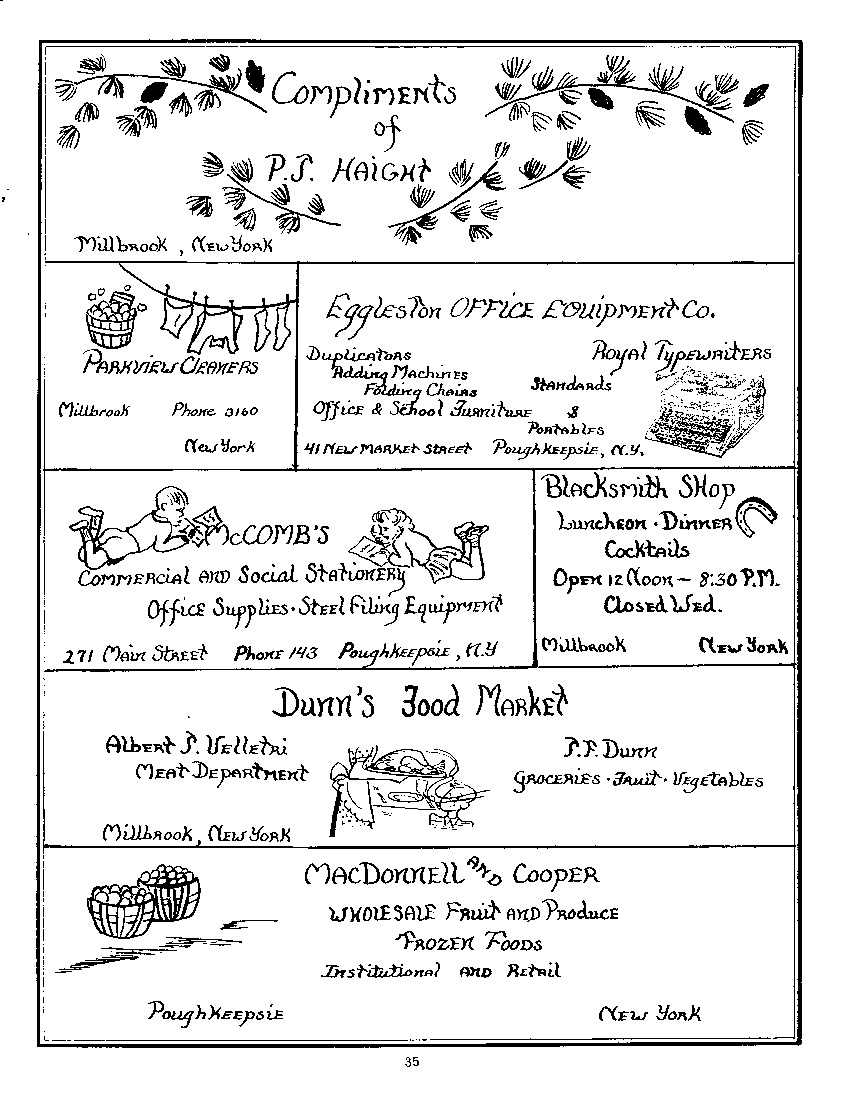 Compliments
of
P.J. Haight
Millbrook, New York
Parkview Cleaners
Millbrook Phone 3160
New York
Eggleston Office Equipment Co.
Duplicators
Adding Machines
Folding Chairs
Office & School Furniture
Royal Typewriters
Standards
&
Portables
41 New Market Street Poughkeepsie, N.Y.
McComb's
Commercial and Social Stationery
Office Supplies · Steel Filing Equipment
271 Main Street Phone 143 Poughkeepsie, N.Y
Blacksmith Shop
Luncheon · Dinner
Cocktails
Open 12 Noon – 8:30 P.M.
Closed Wed.
Millbrook New York
Dunn's Food Market
Albert J. Velletri
Meat Department
Millbrook, New York
Dunn
Groceries · Fruit · Vegetables
MacDonnell and Cooper
Wholesale Fruit and Produce
Frozen Foods
Institutional and Retail
Poughkeepsie New York
35